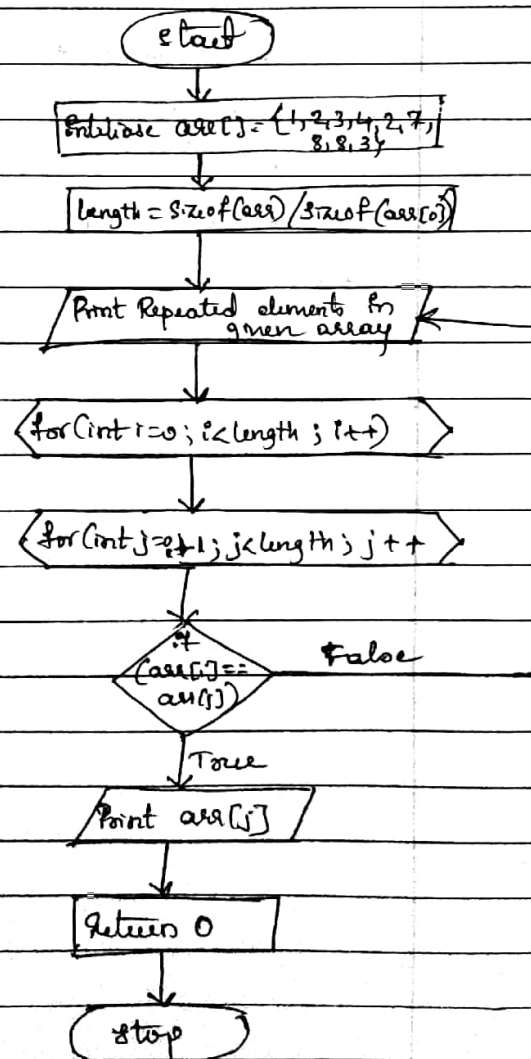 start
Intiliase arr[] = {1, 2, 3, 4, 2, 7,
8, 8, 3}
length = sizeof(arr)/sizeof(arr[0])
Print Repeated elements in
given array
for(int i=0; i<length; i++)
for(int j=i+1; j<length; j++
if
(arr[i]==
arr[j])
False
True
Print arr[j]
Return 0
stop